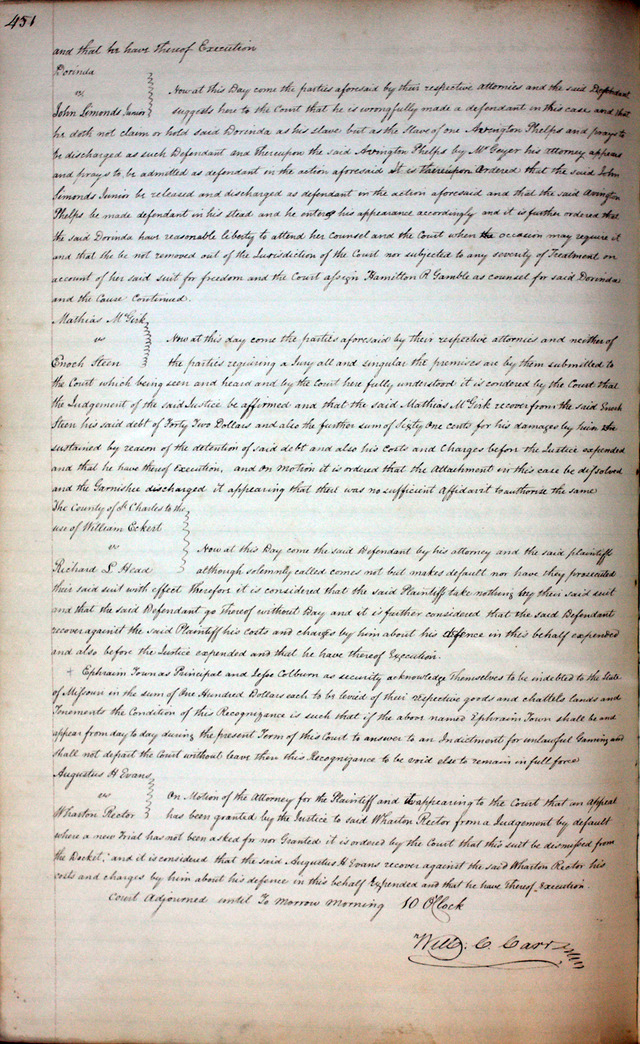 451
and that he have thereof Execution
Dorinda
vs
John Simonds Junior
Now at this Day come the parties aforesaid by their respective attornies and the said Defendant
suggests here to the Court that he is wrongfully made a defendant in this case and that
he doth not claim or hold said Dorinda as his slave but as the slave of one Arrington Phelps and prays to
be discharged as such Defendant and thereupon the said Arrington Phelps by Mr Geyer his attorney appears
and prays to be admitted as defendant in the action aforesaid It is Thereupon Ordered that the said John
Simonds Junior be released and discharged as defendant in the action aforesaid and that the said Arrington
Phelps be made defendant in his stead and he enters his appearance accordingly and it is further ordered that
the said Dorinda have reasonable liberty to attend her counsel and the Court when the occasion may require it
and that she be not removed out of the Jurisdiction of the Court nor subjected to any severity of Treatment on
account of her said suit for freedom and the Court assign Hamilton R Gamble as counsel for said Dorinda
and the Cause Continued.
Mathias McGirk
vs
Enoch Steen
Now at this day come the parties aforesaid by their respective attornies and neither of
the parties requiring a Jury all and singular the premises are by them submitted to
the Court which being seen and heard and by the Court here fully understood it is condered by the Court that
the Judgement of the said Justice be affirmed and that the said Mathias McGirk recover from the said Enoch
Steen his said debt of Forty Two Dollars and also the further sum of Sixty One cents for his damages by him
sustained by reason of the detention of said debt and also his costs and Charges before the Justice expended
and that he have thereof Execution, and on Motion it is ordered that the Attachment in this case be dissolved
and the Garnishee discharged it appearing that there was no sufficient Affidavit to authorize the same
The County of St Charles to the
use of William Eckert
vs
Richard L Head
Now at this Day come the said Defendant by his attorney and the said plaintiff
although solemnly called comes not but makes default nor have they prosecuted
their said suit with effect Therefore it is considered that the said Plaintiff take nothing by their said suit
and that the said Defendant go thereof without Day and it is further considered that the said Defendant
recover against the said Plaintiff his costs and charges by him about his defence in this behalf expended
and also before the Justice expended and that he have thereof Execution.
+ Ephraim Town as Principal and Jesse Colburn as security acknowledge themselves to be indebted to the State
of Missouri in the sum of One Hundred Dollars each to be levied of their respective goods and chattels lands and
Tenements the Condition of this Recognizance is such that if the above named Ephraim Town shall be and
appear from day to day during the present Term of this Court to answer to an Indictment for unlawful Gaming and
shall not depart the Court without leave then this Recognizance to be void else to remain in full force
Augustus H Evans
vs
Wharton Rector
On Motion of the Attorney for the Plaintiff and it appearing to the Court that an appeal
has been granted by the Justice to said Wharton Rector from a Judgement by default
where a new Trial has not been asked for nor Granted it is ordered by the Court that this suit be dismissed from
the Docket; and it is considered that the said Augustus H Evans recover against the said Wharton Rector his
costs and charges by him about his defence in this behalf Expended and that he have thereof Execution.
Court Adjourned until To Morrow Morning 10 OClock
Will: C. Carr